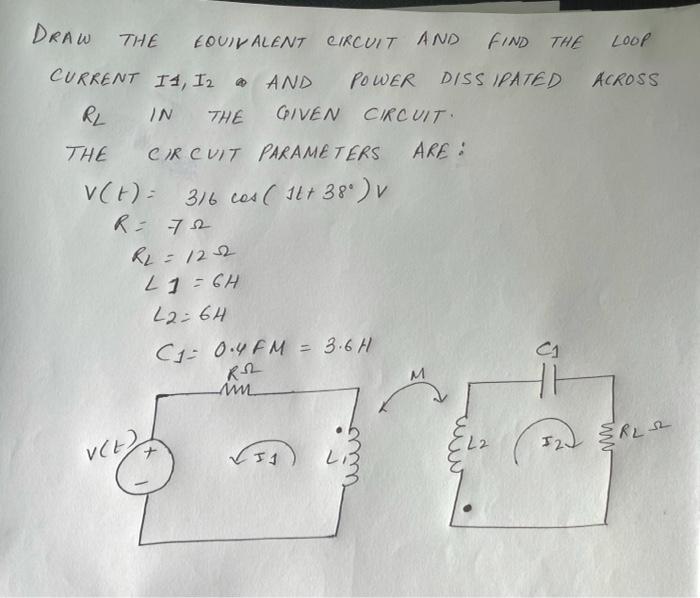 DRAW THE EQUIVALENT CIRCUIT AND FIND THE LOOP
CURRENT I1, I2 AND POWER DISSIPATED ACROSS
RL IN THE GIVEN CIRCUIT.
THE CIRCUIT PARAMETERS ARE:
V(t) = 316 cos(1t+38°)V
R = 7Ω
RL = 12Ω
L1 = 6H
L2 = 6H
C1 = 0.4FM = 3.6H
RΩ
V(t)
+
-
I1
L1
M
C1
L2
I2
RLΩ